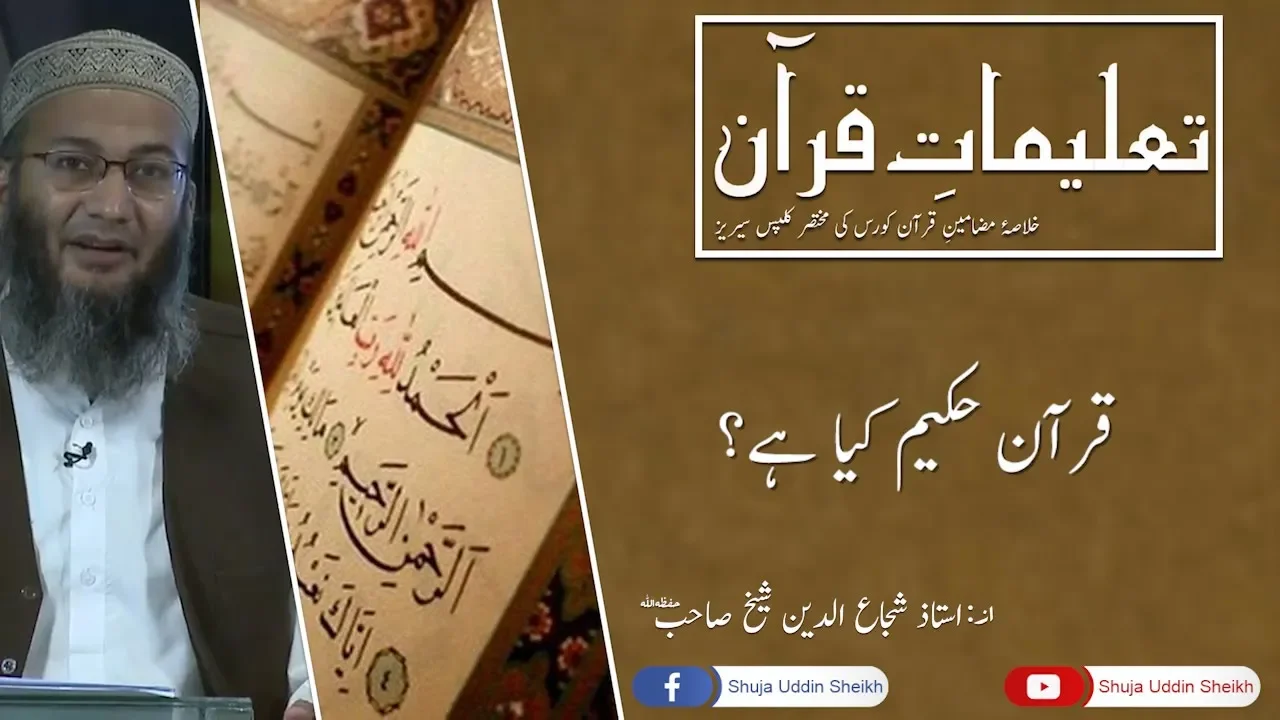 تعلیماتِ قرآن
خلاصۂ مضامینِ قرآن کورس کی مختصر کلپس سیریز
قرآن حکیم کیا ہے؟
از: استاذ شجاع الدین شیخ صاحب حفظہ اللہ
Shuja Uddin Sheikh
Shuja Uddin Sheikh
اَلْحَمْدُ لِلّٰهِ رَبِّ
اَلرَّحْمٰنِ الرَّحِيْمِ
اِيَّاكَ